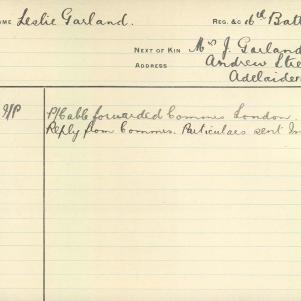 NAME Leslie Garland. REG. &C 16th Batt
NEXT OF KIN Mrs J. Garland
ADDRESS Andrew Stree
Adelaide
9/P P/Cable forwarded Commrs London.
Reply from Commrs. Particulars sent In